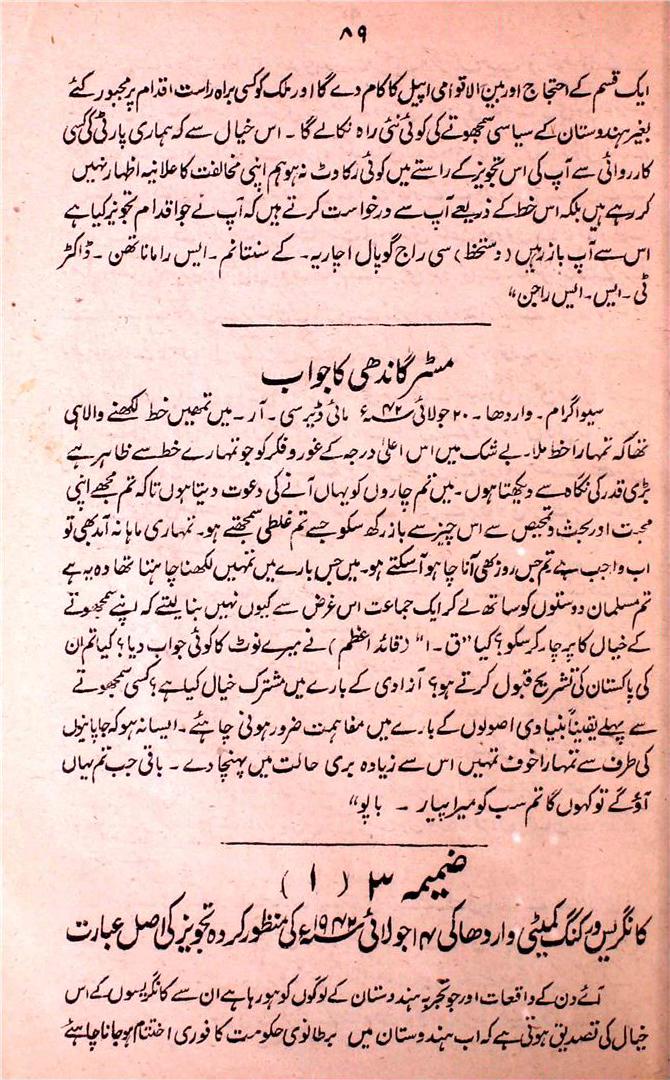 ۸۹
ایک قسم کے احتجاج اور بین الاقوامی اپیل کا کام دے گا اور ملک کو کسی براہ راست اقدام پر مجبور کئے
بغیر ہندوستان کے سیاسی سمجھوتے کی کوئی نئی راہ نکالے گا ۔ اس خیال سے کہ ہماری پارٹی کی کسی
کارروائی سے آپ کی اس تجویز کے راستے میں کوئی رکاوٹ نہ ہو ہم اپنی مخالفت کا علانیہ اظہار نہیں
کر رہے ہیں بلکہ اس خط کے ذریعے آپ سے درخواست کرتے ہیں کہ آپ نے جو اقدام تجویز کیا ہے
اس سے آپ باز رہیں (دستخط) سی راج گوپال اچاریہ ۔ کے سنتانم ۔ ایس راماناتھن ۔ ڈاکٹر
ٹی ۔ ایس ۔ ایس راجن“
مسٹر گاندھی کا جواب
سیواگرام ۔ واردھا ۔ ۲۰ جولائی ۴۲ء مائی ڈیر سی ۔ آر ۔ میں تمھیں خط لکھنے والا ہی
تھا کہ تمہارا خط ملا ۔ بے شک میں اس اعلیٰ درجہ کے غور و فکر کو جو تمہارے خط سے ظاہر ہے
بڑی قدر کی نگاہ سے دیکھتا ہوں ۔ میں تم چاروں کو یہاں آنے کی دعوت دیتا ہوں تاکہ تم مجھے اپنی
محبت اور بحث و تمحیص سے اس چیز سے باز رکھ سکو جسے تم غلطی سمجھتے ہو ۔ تمہاری ماہانہ آمد بھی تو
اب واجب ہے تم جس روز بھی آنا چاہو آ سکتے ہو ۔ میں جس بارے میں تمہیں لکھنا چاہتا تھا وہ یہ ہے
تم مسلمان دوستوں کو ساتھ لے کر ایک جماعت اس غرض سے کیوں نہیں بنا لیتے کہ اپنے سمجھوتے
کے خیال کا پرچار کر سکو؟ کیا ”ق ۔ ا“ (قائد اعظم) نے میرے نوٹ کا کوئی جواب دیا؟ کیا تم ان
کی پاکستان کی تشریح قبول کرتے ہو؟ آزادی کے بارے میں مشترک خیال کیا ہے؟ کسی سمجھوتے
سے پہلے یقیناً بنیادی اصولوں کے بارے میں مفاہمت ضرور ہونی چاہئے ۔ ایسا نہ ہو کہ جاپانیوں
کی طرف سے تمہارا خوف تمہیں اس سے زیادہ بری حالت میں پہنچا دے ۔ باقی جب تم یہاں
آؤ گے تو کہوں گا تم سب کو میرا پیار ۔ باپو“
ضمیمہ ۳ (۱)
کانگریس ورکنگ کمیٹی واردھا کی ۱۴ جولائی ۱۹۴۲ء کی منظور کردہ تجویز کی اصل عبارت
آئے دن کے واقعات اور جو تجربہ ہندوستان کے لوگوں کو ہو رہا ہے ان سے کانگریسوں کے اس
خیال کی تصدیق ہوتی ہے کہ اب ہندوستان میں برطانوی حکومت کا فوری اختتام ہو جانا چاہئے